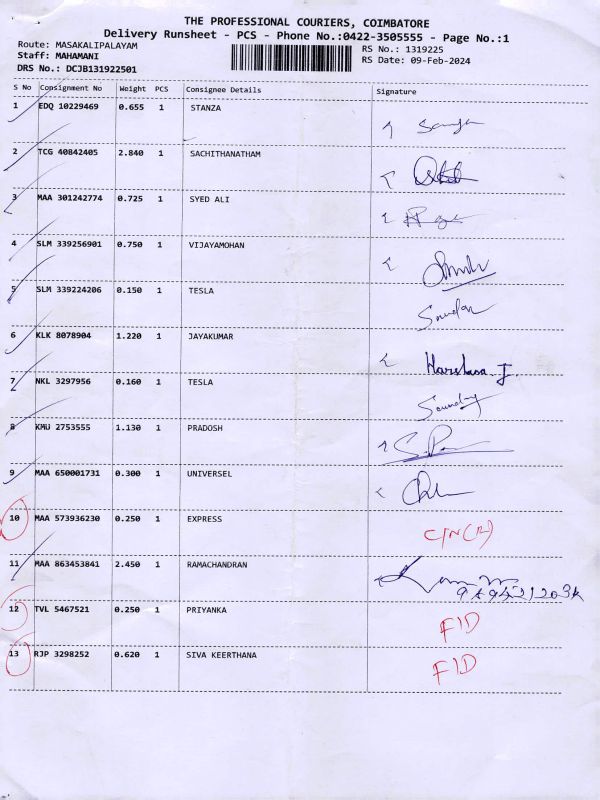 THE PROFESSIONAL COURIERS, COIMBATORE
Delivery Runsheet - PCS - Phone No.:0422-3505555 - Page No.:1
Route: MASAKALIPALAYAM
RS No.: 1319225
Staff: MAHAMANI
RS Date: 09-Feb-2024
DRS No.: DCJB131922501
S No Consignment No Weight PCS Consignee Details Signature
1 EDQ 10229469 0.655 1 STANZA
2 TCG 40842405 2.840 1 SACHITHANATHAM
3 MAA 301242774 0.725 1 SYED ALI
4 SLM 339256901 0.750 1 VIJAYAMOHAN
5 SLM 339224206 0.150 1 TESLA
6 KLK 8078904 1.220 1 JAYAKUMAR
7 NKL 3297956 0.160 1 TESLA
8 KMU 2753555 1.130 1 PRADOSH
9 MAA 650001731 0.300 1 UNIVERSEL
10 MAA 573936230 0.250 1 EXPRESS C/N(R)
11 MAA 863453841 2.450 1 RAMACHANDRAN
12 TVL 5467521 0.250 1 PRIYANKA FID
13 RJP 3298252 0.620 1 SIVA KEERTHANA FID